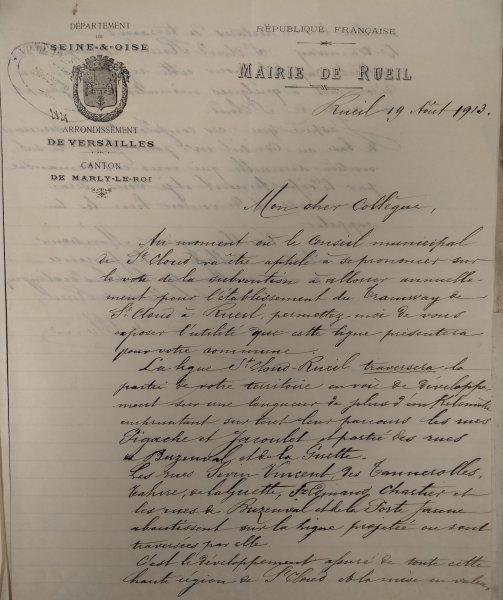 DÉPARTEMENT
DE
SEINE-&-OISE
ARRONDISSEMENT
DE VERSAILLES
CANTON
DE MARLY-LE-ROI
RÉPUBLIQUE FRANÇAISE
MAIRIE DE RUEIL
Rueil 19 Août 1913.
Mon cher Collègue,
Au moment où le Conseil municipal
de St Cloud va être appelé à se prononcer sur
le vote de la subvention à allouer annuelle-
ment pour l'établissement du Tramway de
St Cloud à Rueil, permettez-moi de vous
exposer l'utilité que cette ligne présentera
pour votre commune.
La ligne St Cloud-Rueil traversera la
partie de votre territoire en voie de développe
ment sur une longueur de plus d'un Kilomètre
empruntant sur tout leur parcours les rues
Pigache et Jacoulet et partie des rues
de Buzenval et de la Guette.
Les rues Sevin Vincent, des Tennerolles,
Tahère, de la Guette, Ferdinand Chartier et
les rues de Buzenval et de la Porte Jaune
aboutissent sur la ligne projetée ou sont
traversées par elle.
C'est le développement assuré de toute cette
haute région de St Cloud et la mise en valeur